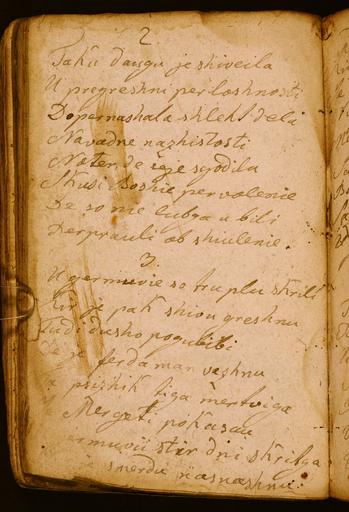 2.
Taku daugu je shiveila
U pregreshni perloshnosti
Dopernashala shleht dela
Navadne nazhistosti
Noter de seje sgodila
Skusi Boshie pervolenie
De so nie lubga u bili
Perpravli ob shiulenie.
3.
U germuvie so truplu skrili
je pak shiou greshnu
tudi dusho pogubili
je ferdaman vezhnu
prishik tiga mertviga
Mergeti pokasau
germuvii stir dni skritga
smerdu nasnashnu.